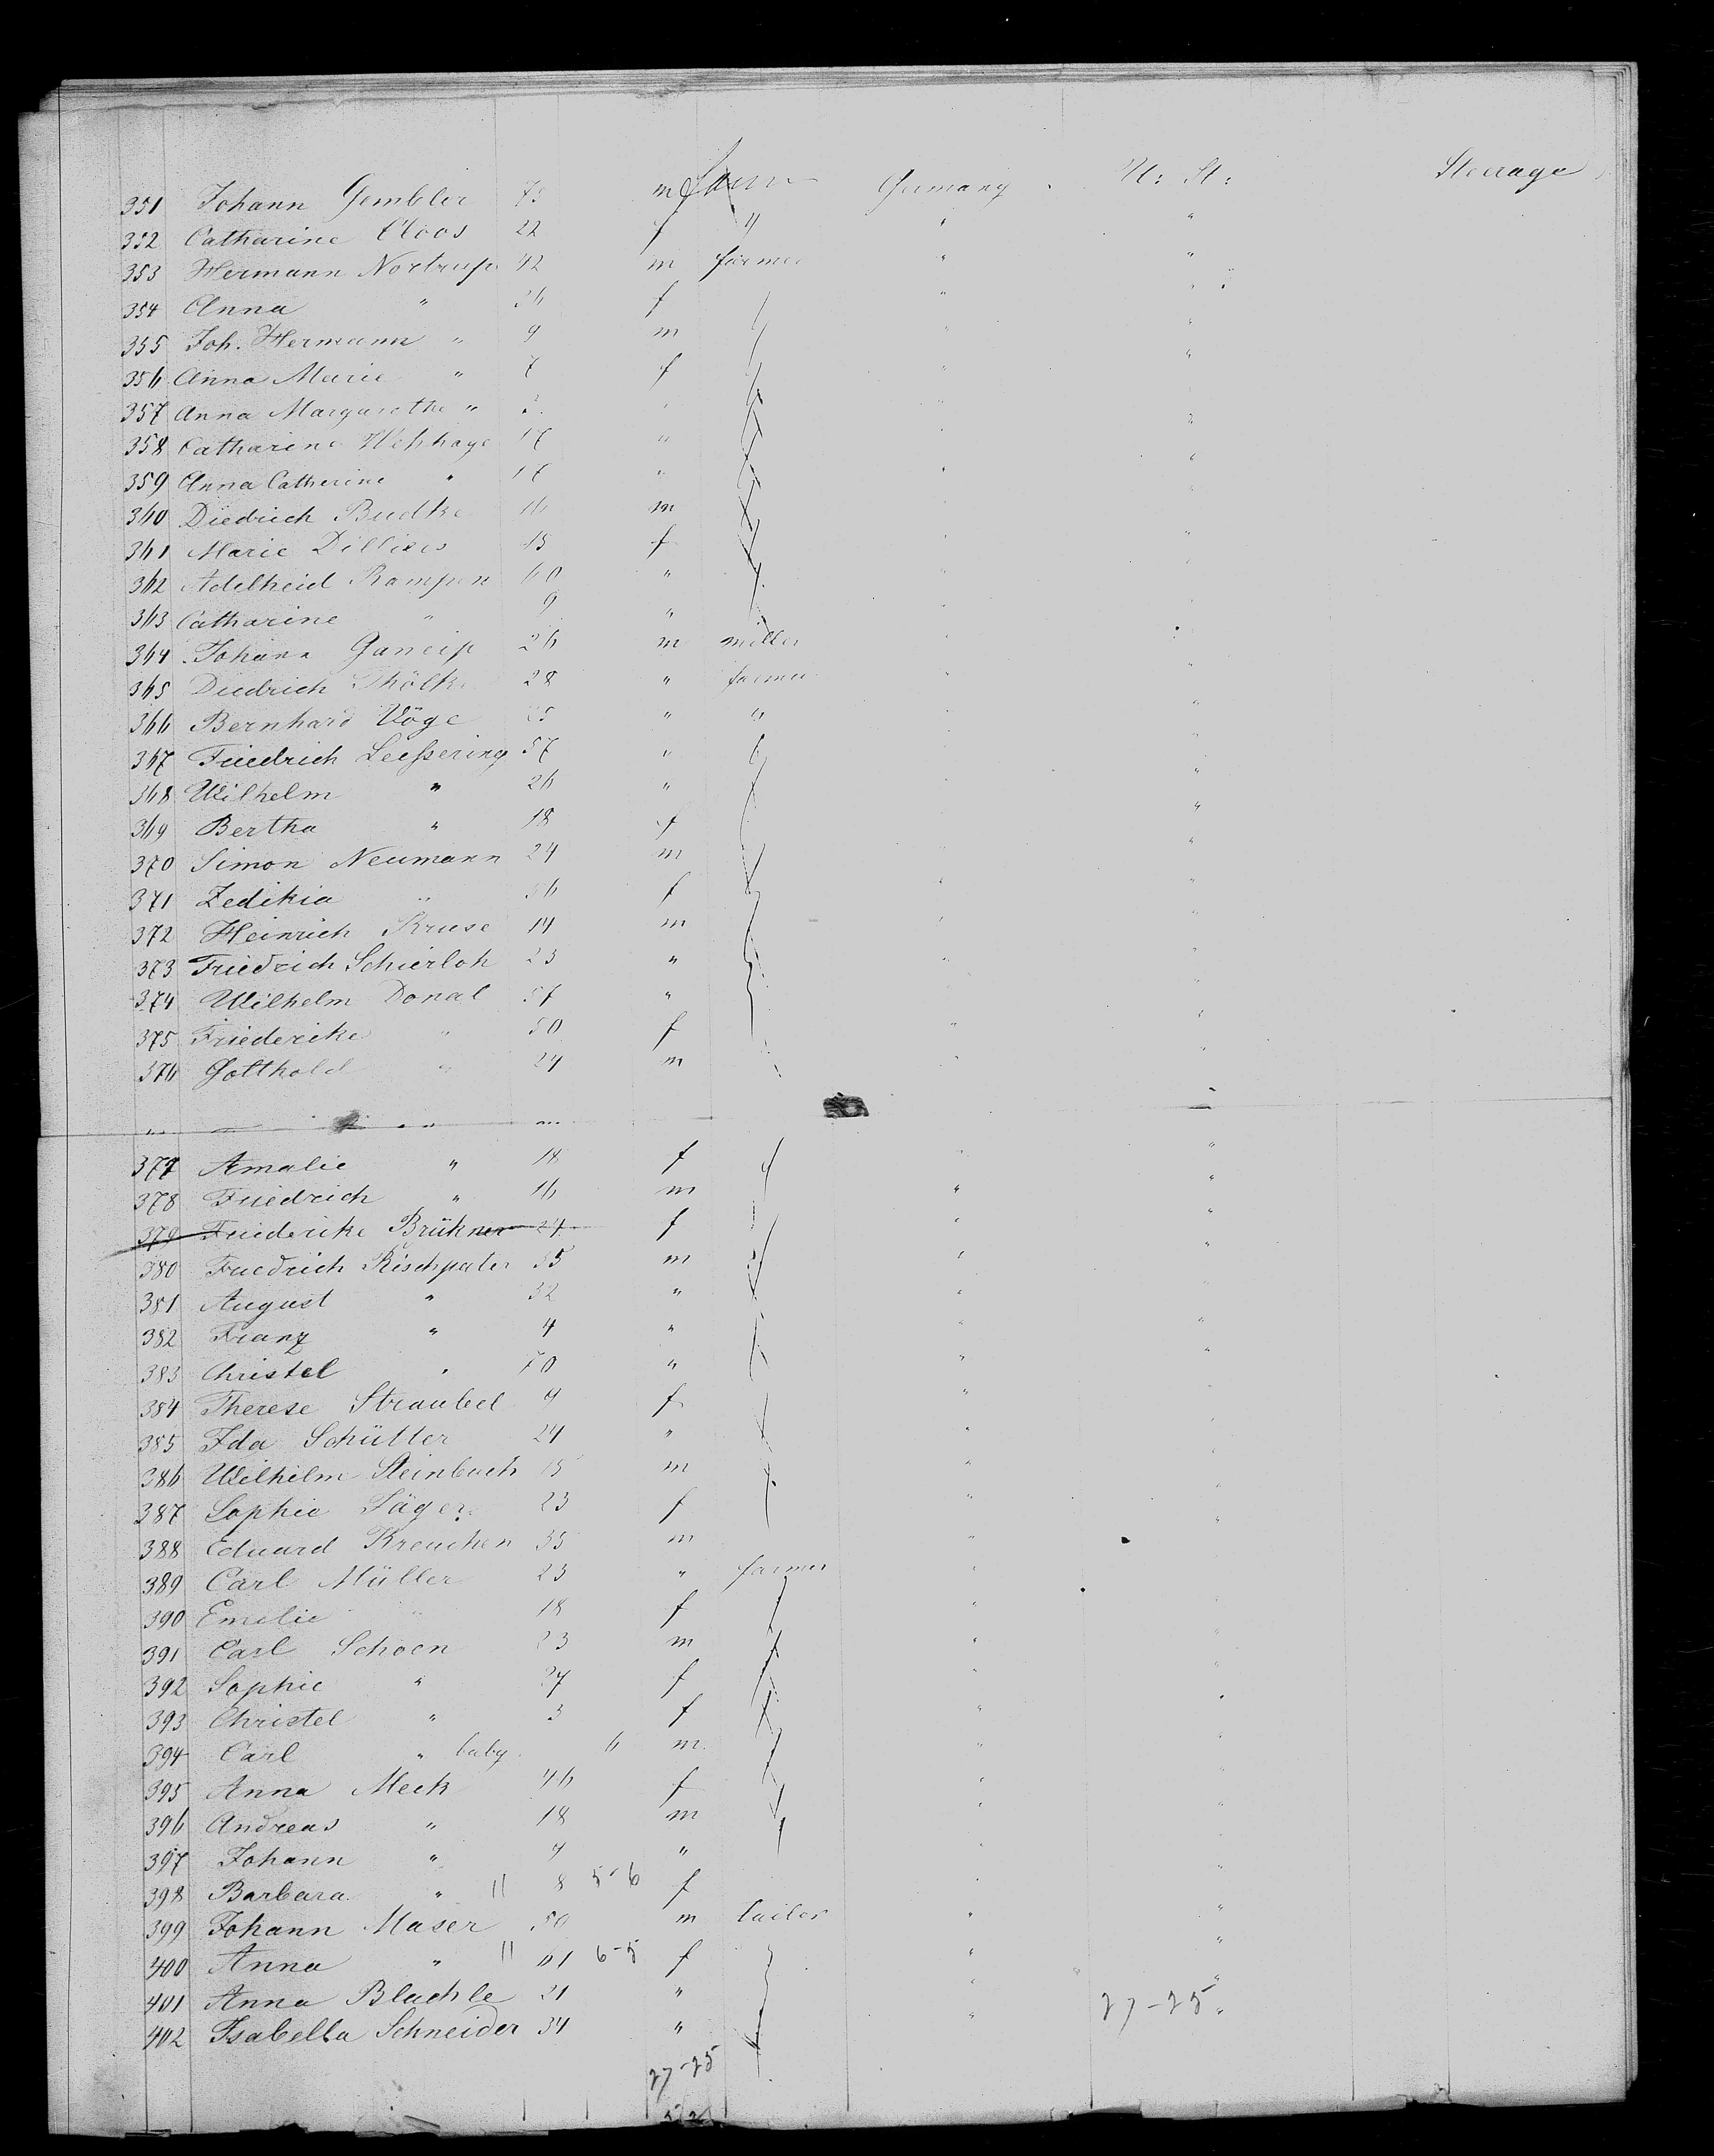 351 Johann Gembler 75 m Germany U: St: Steerage
352 Catharine Cloos 22 f " " "
353 Hermann Nortrup 42 m farmer " "
354 Anna " 36 f " "
355 Joh. Hermann " 9 m " "
356 Anna Marie " 7 f " "
357 Anna Margarethe "
358 Catharine Wehhage 17 " "
359 Anna Catherine " 17 " " "
360 Diedrich Budke 16 m
361 Marie 15 f " "
362 Adelheid Rampen 60 " "
363 Catharine " 9 "
364 Johann Ganeip 26 m miller "
365 Diedrich Thölke 28 " farmer "
366 Bernhard Vöge " " "
367 Friedrich Leeßering 57 " "
368 Wilhelm " 26 " "
369 Bertha " 18 f "
370 Simon Neumann 24 m "
371 Zedikia " 56 f " "
372 Heinrich Kruse 14 m " "
373 Friedrich Schierloh 23 " " "
374 Wilhelm Donal 57 " "
375 Friedericke " 50 f " "
376 Gotthold " 24 m " "
377 Amalie " 18 f " "
378 Friedrich " 16 m " "
379 Friedericke Brükner 24 f " "
380 Friedrich Rischpater 35 m " "
381 August " 32 " "
382 Franz " 4 " " "
383 Christel " 70 " " "
384 Therese Straubel 9 f "
385 Ida Schütter 24 " "
386 Wilhelm Steinbach 15 m " "
387 Sophie Jäger 23 f " "
388 Eduard Kreuchen 35 m " "
389 Carl Müller 23 " farmer "
390 Emilie " 18 f "
391 Carl Schoen 23 m " "
392 Sophie " 27 f " "
393 Christel " 3 f " "
394 Carl " baby 6 m " "
395 Anna Meck 46 f " "
396 Andreas " 18 m " "
397 Johann " 9 " "
398 Barbara " 11 8 5-6 f "
399 Johann Maser 50 m tailor " "
400 Anna " 11 61 6-5 f " "
401 Anna Blachle 21 " " "
402 Isabella Schneider 34 " " 27-25 "
27-25
52